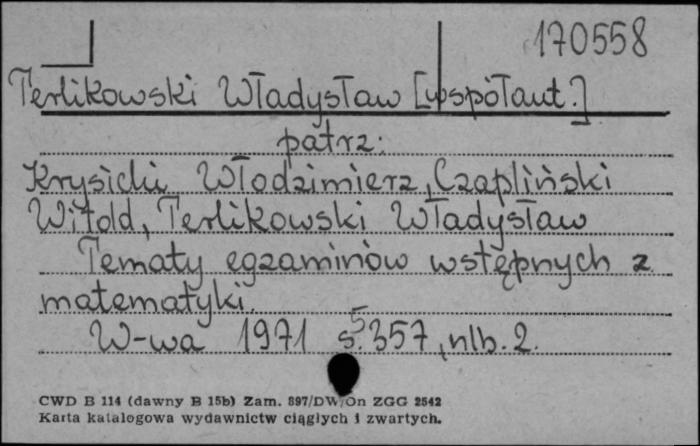 170558
Terlikowski Władysław [współaut.]
patrz:
Krysicki Włodzimierz, Czapliński
Witold, Terlikowski Władysław
Tematy egzaminów wstępnych z
matematyki.
W-wa 1971 s. 357, nlb. 2.
CWD B 114 (dawny B 15b) Zam. 897/DW/On ZGG 2542
Karta katalogowa wydawnictw ciągłych i zwartych.